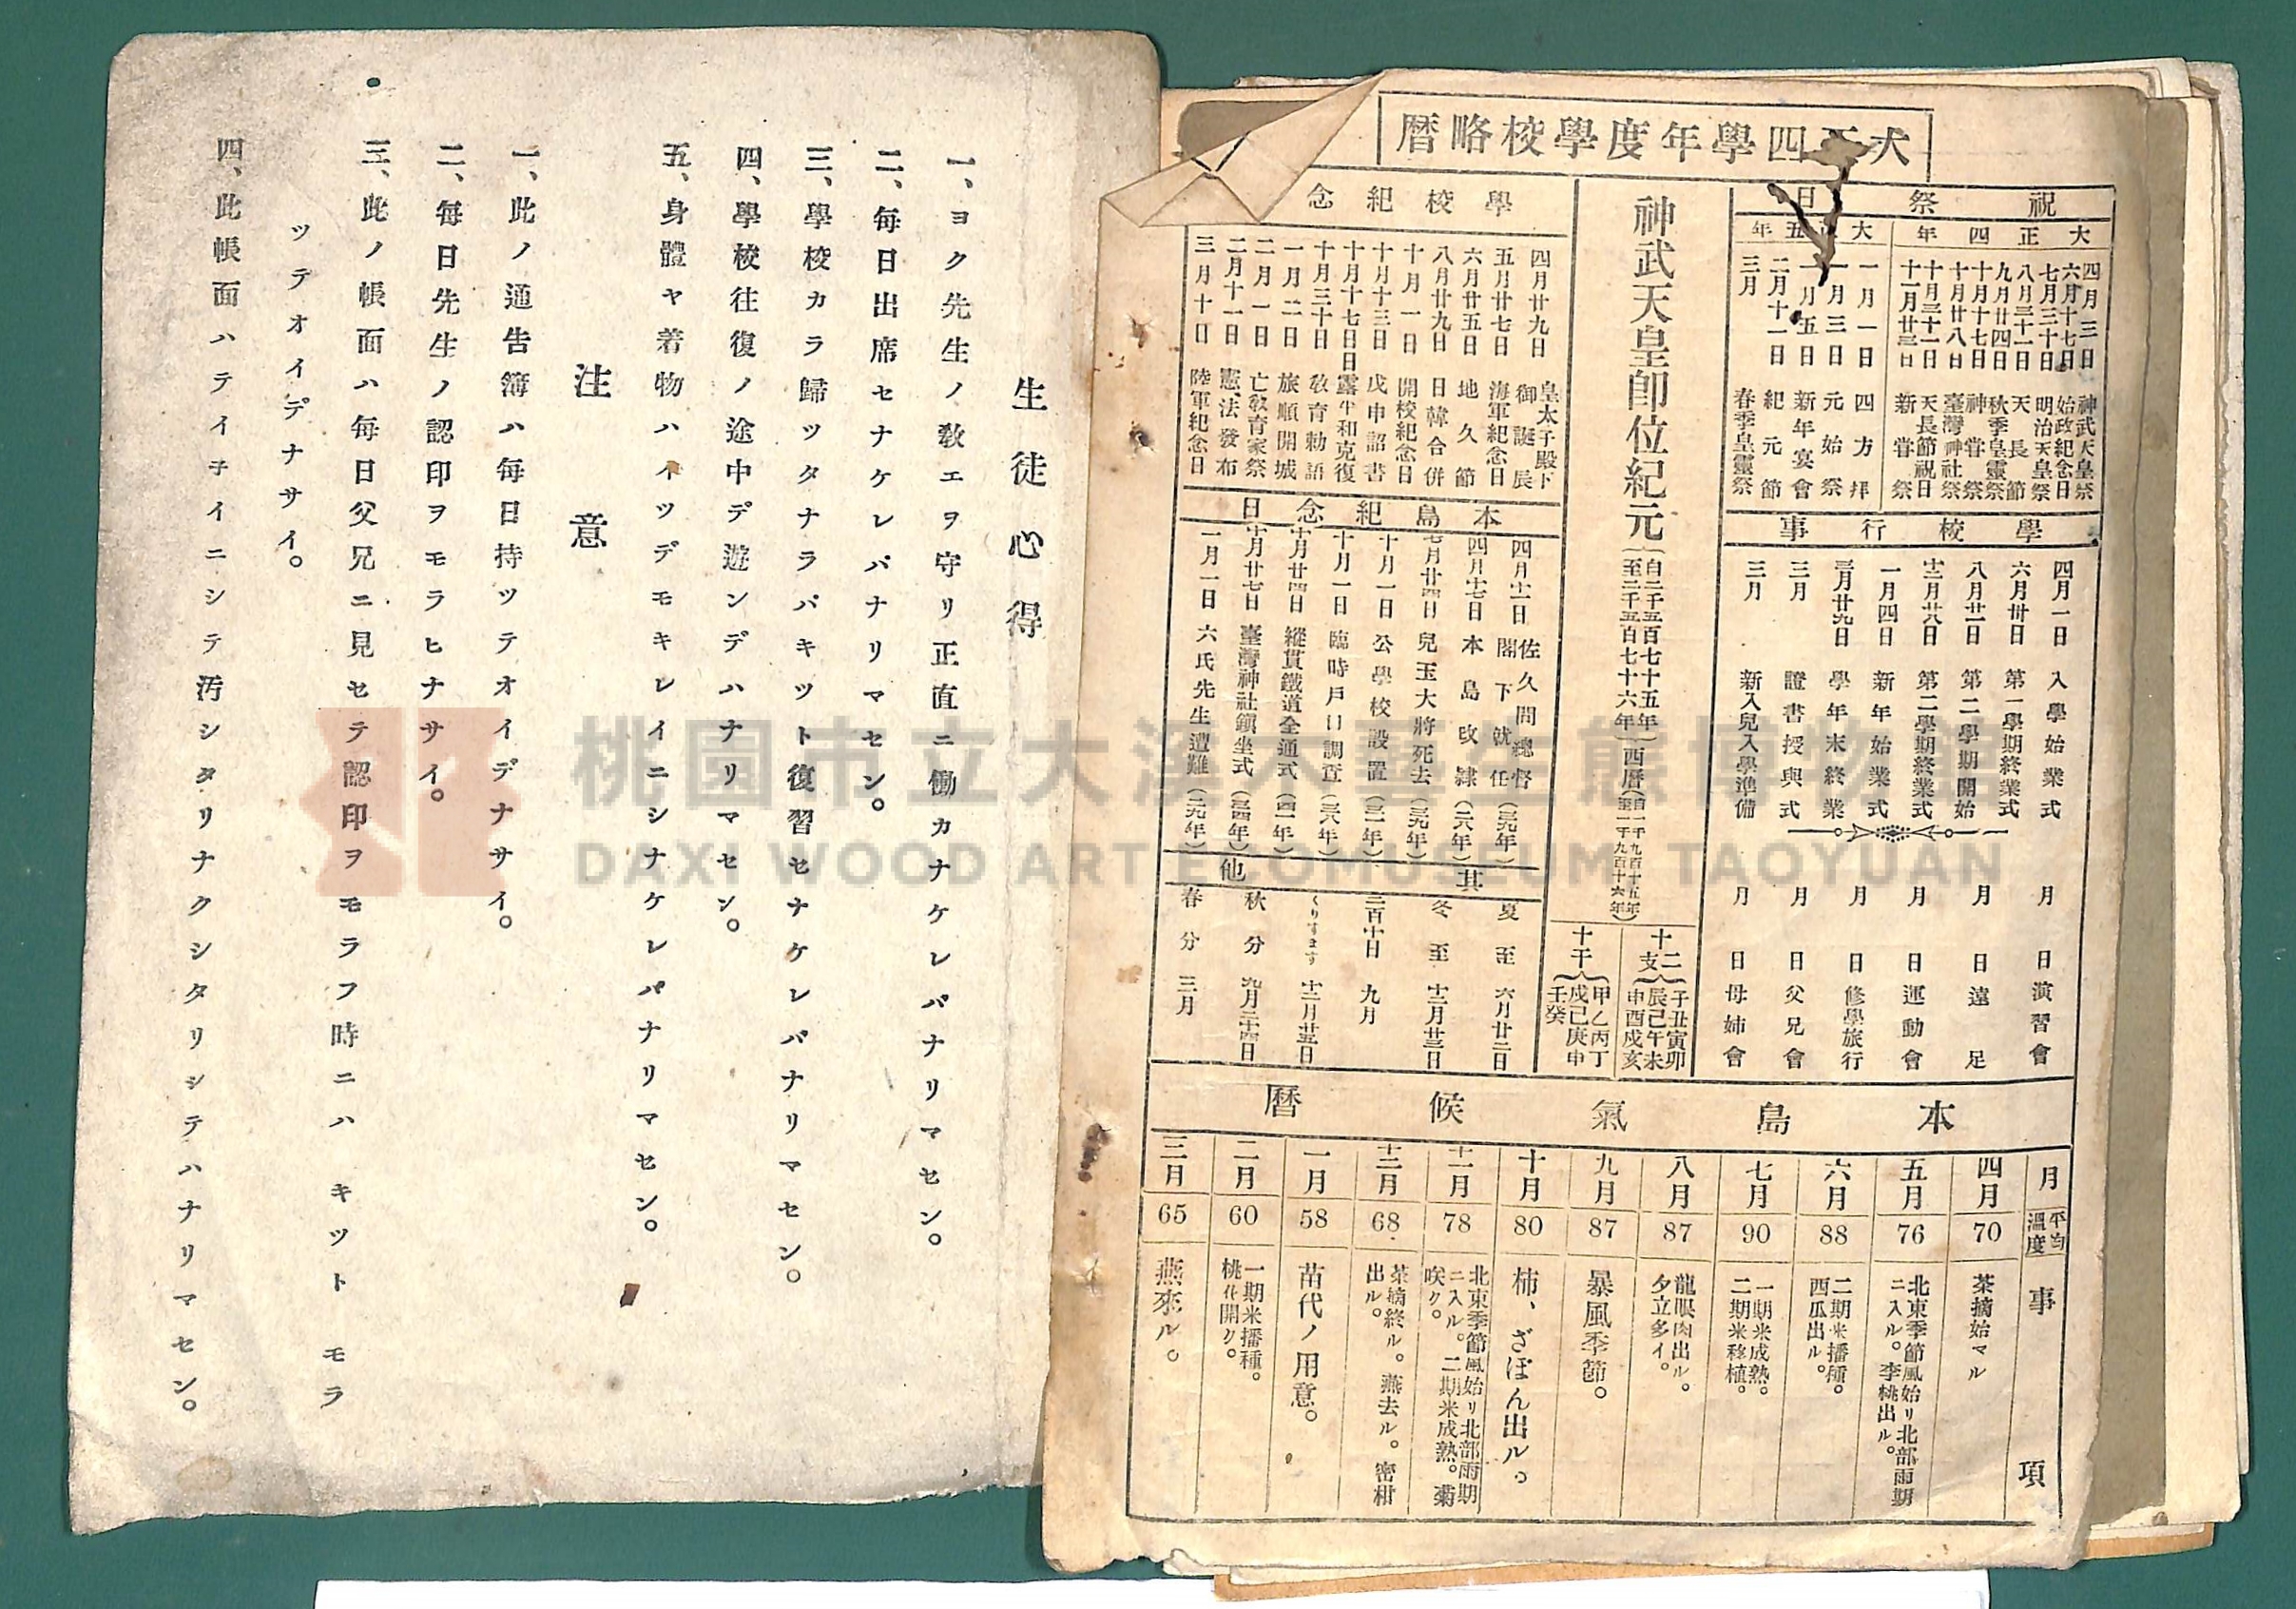 大正四學年度學校略曆
祝祭日
大正四年
四月三日 神武天皇祭
六月十七日 始政紀念日
七月三十日 明治天皇祭
八月三十一日 天長節
九月廿四日 秋季皇靈祭
十月十七日 神甞祭
十月廿八日 臺灣神社祭
十月三十一日 天長節祝日
十一月廿三日 新甞祭
大正五年
一月一日 四方拜
一月三日 元始祭
一月五日 新年宴會
二月十一日 紀元節
三月 春季皇靈祭
學校行事
四月一日 入學始業式
六月卅日 第一學期終業式
八月廿一日 第二學期開始
十二月廿八日 第二學期終業式
一月四日 新年始業式
三月廿九日 學年末終業
三月 證書授與式
三月 新入兒入學準備
月 日 演習會
月 日 遠足
月 日 運動會
月 日 修學旅行
月 日 父兄會
月 日 母姉會
神武天皇卽位紀元(自二千五百七十五年 至二千五百七十六年)西曆(自一千九百十五年 至一千九百十六年)
十二支{子丑寅卯 辰己午未 申酉戌亥
十干{甲乙丙丁 戊己庚申 壬癸
學校紀念
四月廿九日 皇太子殿下御誕辰
五月廿七日 海軍紀念日
六月廿五日 地久節
八月廿九日 日韓合併
十月一日 開校紀念日
十月十三日 戊申詔書
十月十七日 露平和克復
十月三十日 敎育勅語
一月二日 旅順開城
二月一日 亡敎育家祭
二月十一日 憲法發布
三月十日 陸軍紀念日
本島紀念日
四月十一日 佐久間總督閣下就任(三九年)
四月十七日 本島改隷(二八年)
七月廿四日 兒玉大將死去(三九年)
十月一日 公學校設置(三一年)
十月一日 臨時戶口調査(三八年)
十月廿四日 縱貫鐵道全通式(四一年)
十月廿七日 臺灣神社鎭坐式(三四年)
一月一日 六氏先生遭難(二九年)
其他
夏至 六月廿二日
冬至 十二月廿三日
二百十日 九月
くりすます 十二月廿五日
秋分 九月二十四日
春分 三月
本島氣候曆
月 平均溫度 事項
四月 70 茶摘始マル
五月 76 北東季節風始リ北部雨期ニ入ル。李桃出ル。
六月 88 二期米播種。西瓜出ル。
七月 90 一期米成熟。二期米移植。
八月 87 龍眼肉出ル。夕立多イ。
九月 87 暴風季節。
十月 80 柿、ざぼん出ル。
十一月 78 北東季節風始リ北部雨期ニ入ル。二期米成熟。菊咲ク。
十二月 68 茶摘終ル。燕去ル。密柑出ル。
一月 58 苗代ノ用意。
二月 60 一期米播種。桃花開ク。
三月 65 燕來ル。
生徒心得
一、ヨク先生ノ敎エヲ守リ正直ニ働カナケレバナリマセン。
二、每日出席セナケレバナリマセン。
三、學校カラ歸ツタナラバキツト復習セナケレバナリマセン。
四、學校往復ノ途中デ遊ンデハナリマセン。
五、身體ヤ着物ハイツデモキレイニシナケレバナリマセン。
注意
一、此ノ通告簿ハ每日持ツテオイデナサイ。
二、每日先生ノ認印ヲモラヒナサイ。
三、此ノ帳面ハ每日父兄ニ見セテ認印ヲモラフ時ニハ キツト モラ
ツテオイデナサイ。
四、此帳面ハテイネイニシテ汚シタリナクシタリシテハナリマセン。
桃園市立大溪木藝生態博物館
DAXI WOOD ART ECOMUSEUM, TAOYUAN